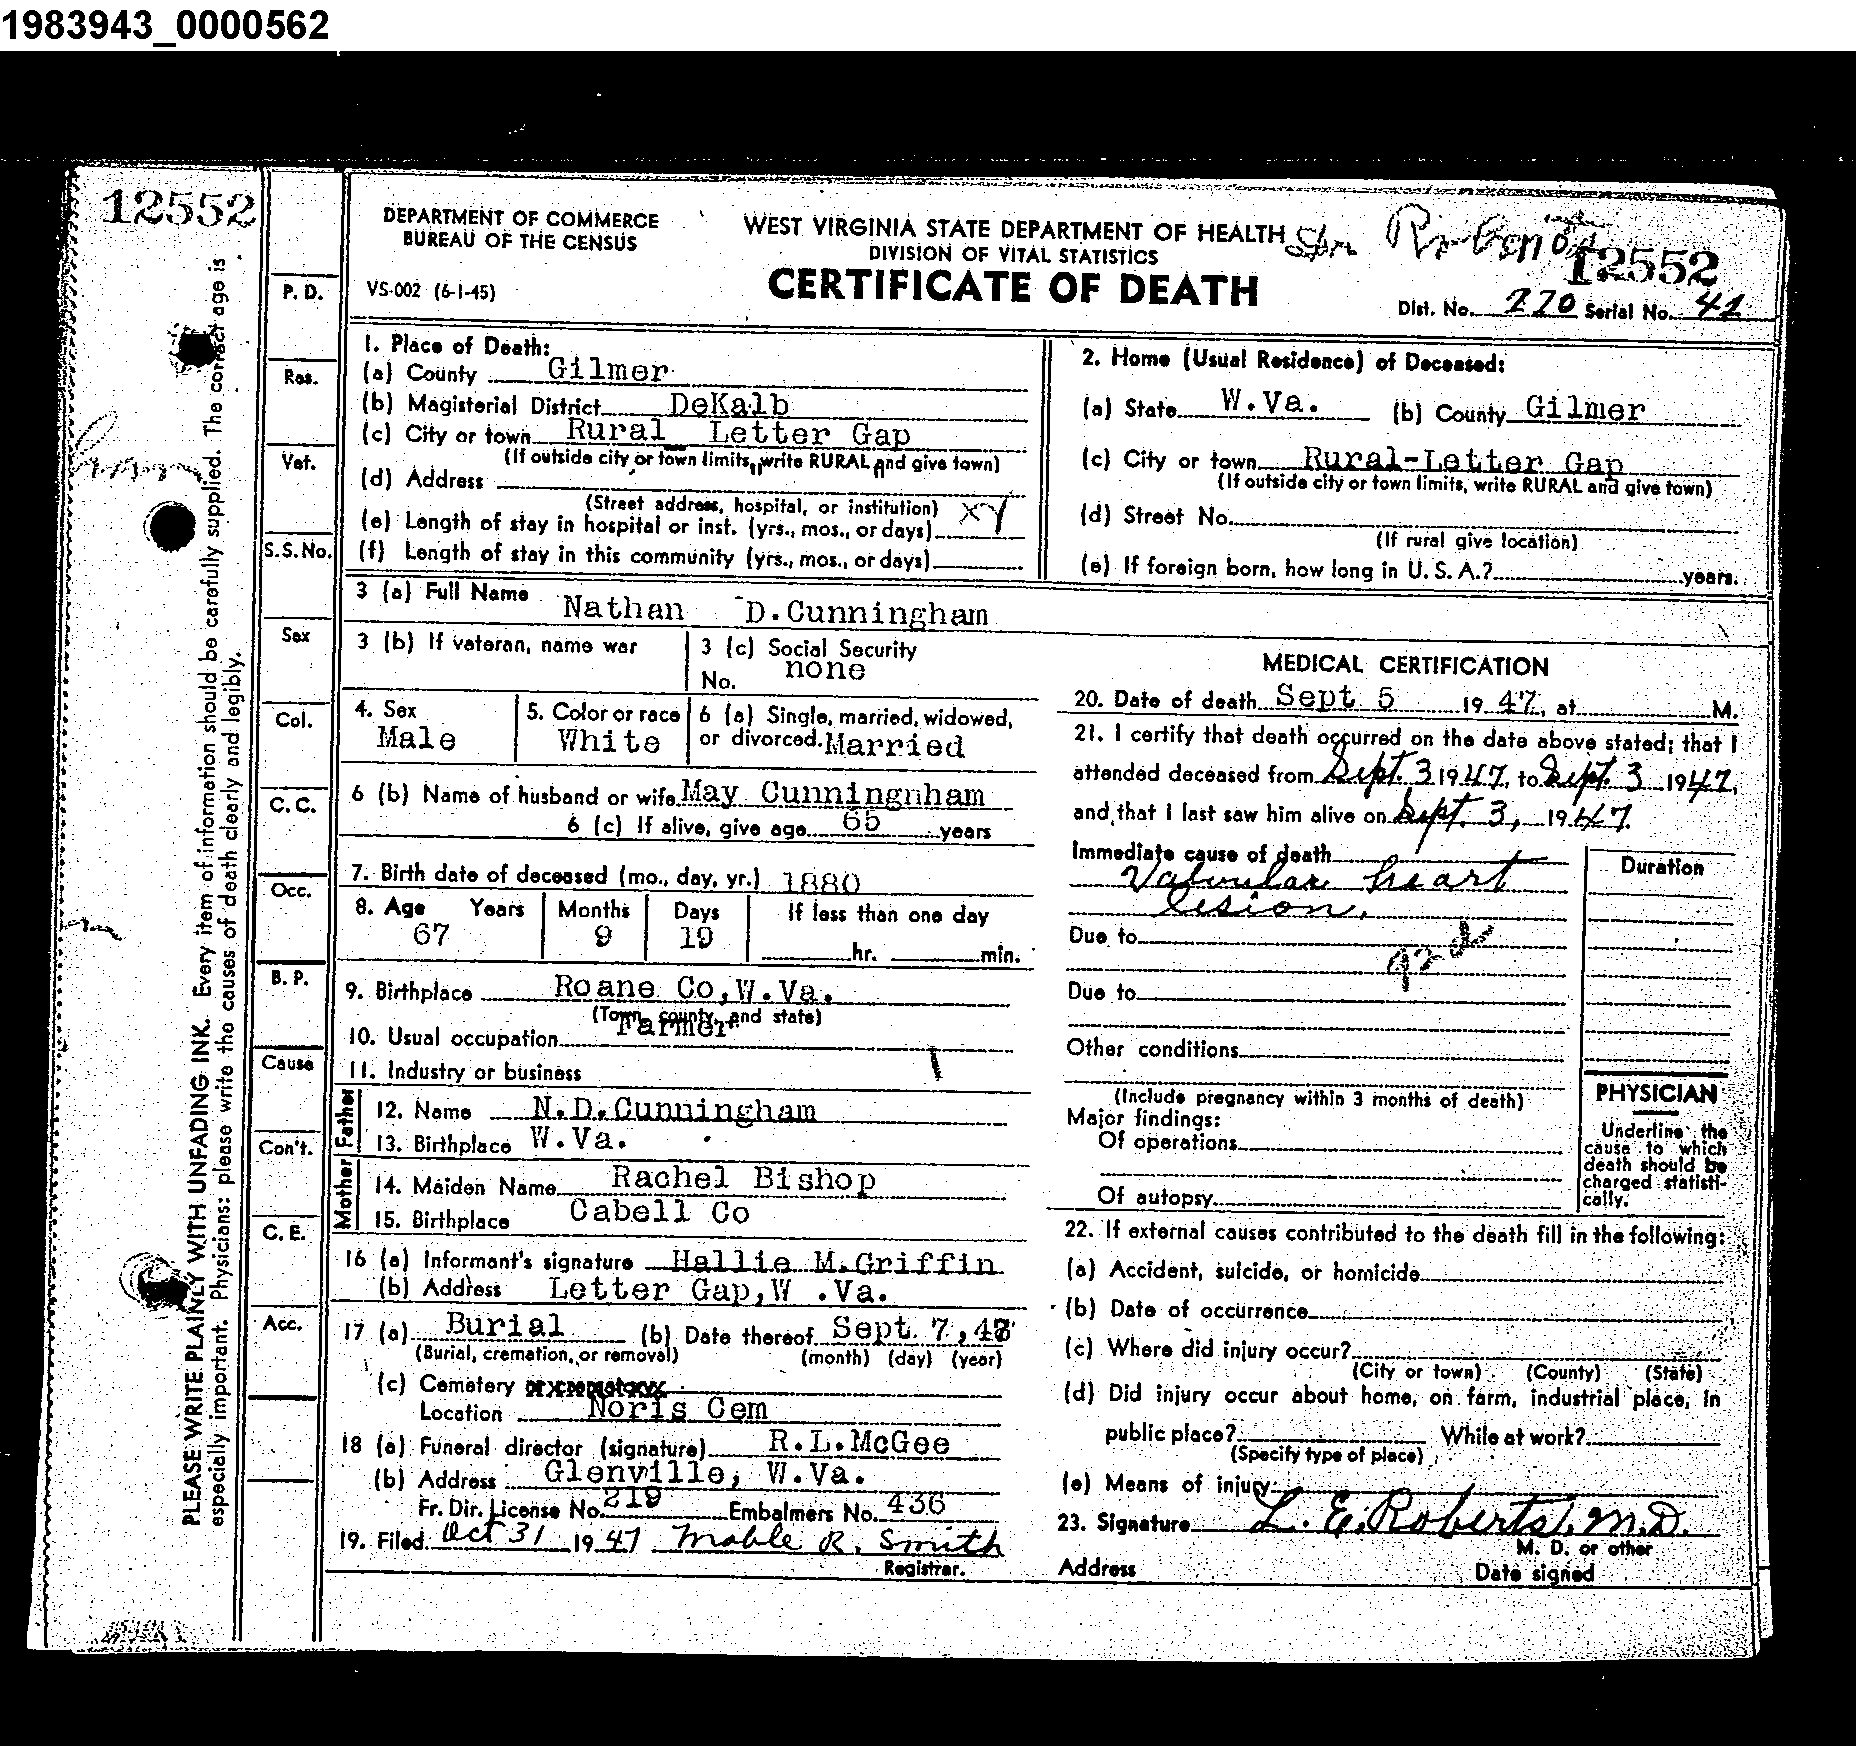 1983943_0000562
12552
DEPARTMENT OF COMMERCE
BUREAU OF THE CENSUS
VS-002 (6-1-45)
WEST VIRGINIA STATE DEPARTMENT OF HEALTH
DIVISION OF VITAL STATISTICS
CERTIFICATE OF DEATH
12552
Dist. No. 270 Serial No. 42
PLEASE WRITE PLAINLY WITH UNFADING INK. Every item of information should be carefully supplied. The correct age is
especially important. Physicians: please write the causes of death clearly and legibly.
P. D.
Res.
Vet.
S.S. No.
Sex
Col.
C. C.
Occ.
B. P.
Cause
Con't.
C. E.
Acc.
1. Place of Death:
(a) County Gilmer
(b) Magisterial District DeKalb
(c) City or town Rural Letter Gap
(If outside city or town limits, write RURAL and give town)
(d) Address
(Street address, hospital, or institution)
(e) Length of stay in hospital or inst. (yrs., mos., or days)
(f) Length of stay in this community (yrs., mos., or days)
2. Home (Usual Residence) of Deceased:
(a) State W.Va. (b) County Gilmer
(c) City or town Rural-Letter Gap
(If outside city or town limits, write RURAL and give town)
(d) Street No.
(If rural give location)
(e) If foreign born, how long in U. S. A.? years.
3 (a) Full Name Nathan D.Cunningham
3 (b) If veteran, name war
3 (c) Social Security
No. none
4. Sex
Male
5. Color or race
White
6 (a) Single, married, widowed,
or divorced. Married
6 (b) Name of husband or wife May Cunningnham
6 (c) If alive, give age 65 years
7. Birth date of deceased (mo., day, yr.) 1880
8. Age Years Months Days If less than one day
67 9 19 hr. min.
9. Birthplace Roane Co,W.Va.
(Town, county, and state)
10. Usual occupation Farmer
11. Industry or business
Father
12. Name N.D.Cunningham
13. Birthplace W.Va.
Mother
14. Maiden Name Rachel Bishop
15. Birthplace Cabell Co
16 (a) Informant's signature Hallie M.Griffin
(b) Address Letter Gap,W .Va.
17 (a) Burial (b) Date thereof Sept. 7,47
(Burial, cremation, or removal) (month) (day) (year)
(c) Cemetery
Location Noris Cem
18 (a) Funeral director (signature) R.L.McGee
(b) Address Glenville, W.Va.
Fr. Dir. License No. 219 Embalmers No. 436
19. Filed Oct 31 1947 Mable R. Smith
Registrar.
MEDICAL CERTIFICATION
20. Date of death Sept 5 19 47, at M.
21. I certify that death occurred on the date above stated; that I
attended deceased from Sept. 3 1947, to Sept. 3 1947,
and that I last saw him alive on Sept. 3, 1947.
Immediate cause of death
Valvular heart
lesion.
Duration
Due to
Due to
Other conditions
(Include pregnancy within 3 months of death)
Major findings:
Of operations
Of autopsy
PHYSICIAN
Underline the
cause to which
death should be
charged statisti-
cally.
22. If external causes contributed to the death fill in the following:
(a) Accident, suicide, or homicide
(b) Date of occurrence
(c) Where did injury occur?
(City or town) (County) (State)
(d) Did injury occur about home, on farm, industrial place, in
public place? While at work?
(Specify type of place)
(e) Means of injury
23. Signature L. E. Roberts, M.D.
M. D. or other
Address Date signed